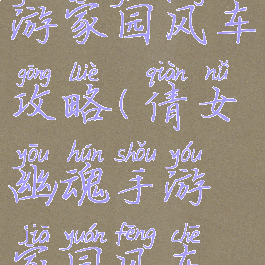 游家园风车
gōng lüè qiàn nǚ
攻略(倩女
yōu hún shǒu yóu
幽魂手游
jiā yuán fēng chē
家园风车